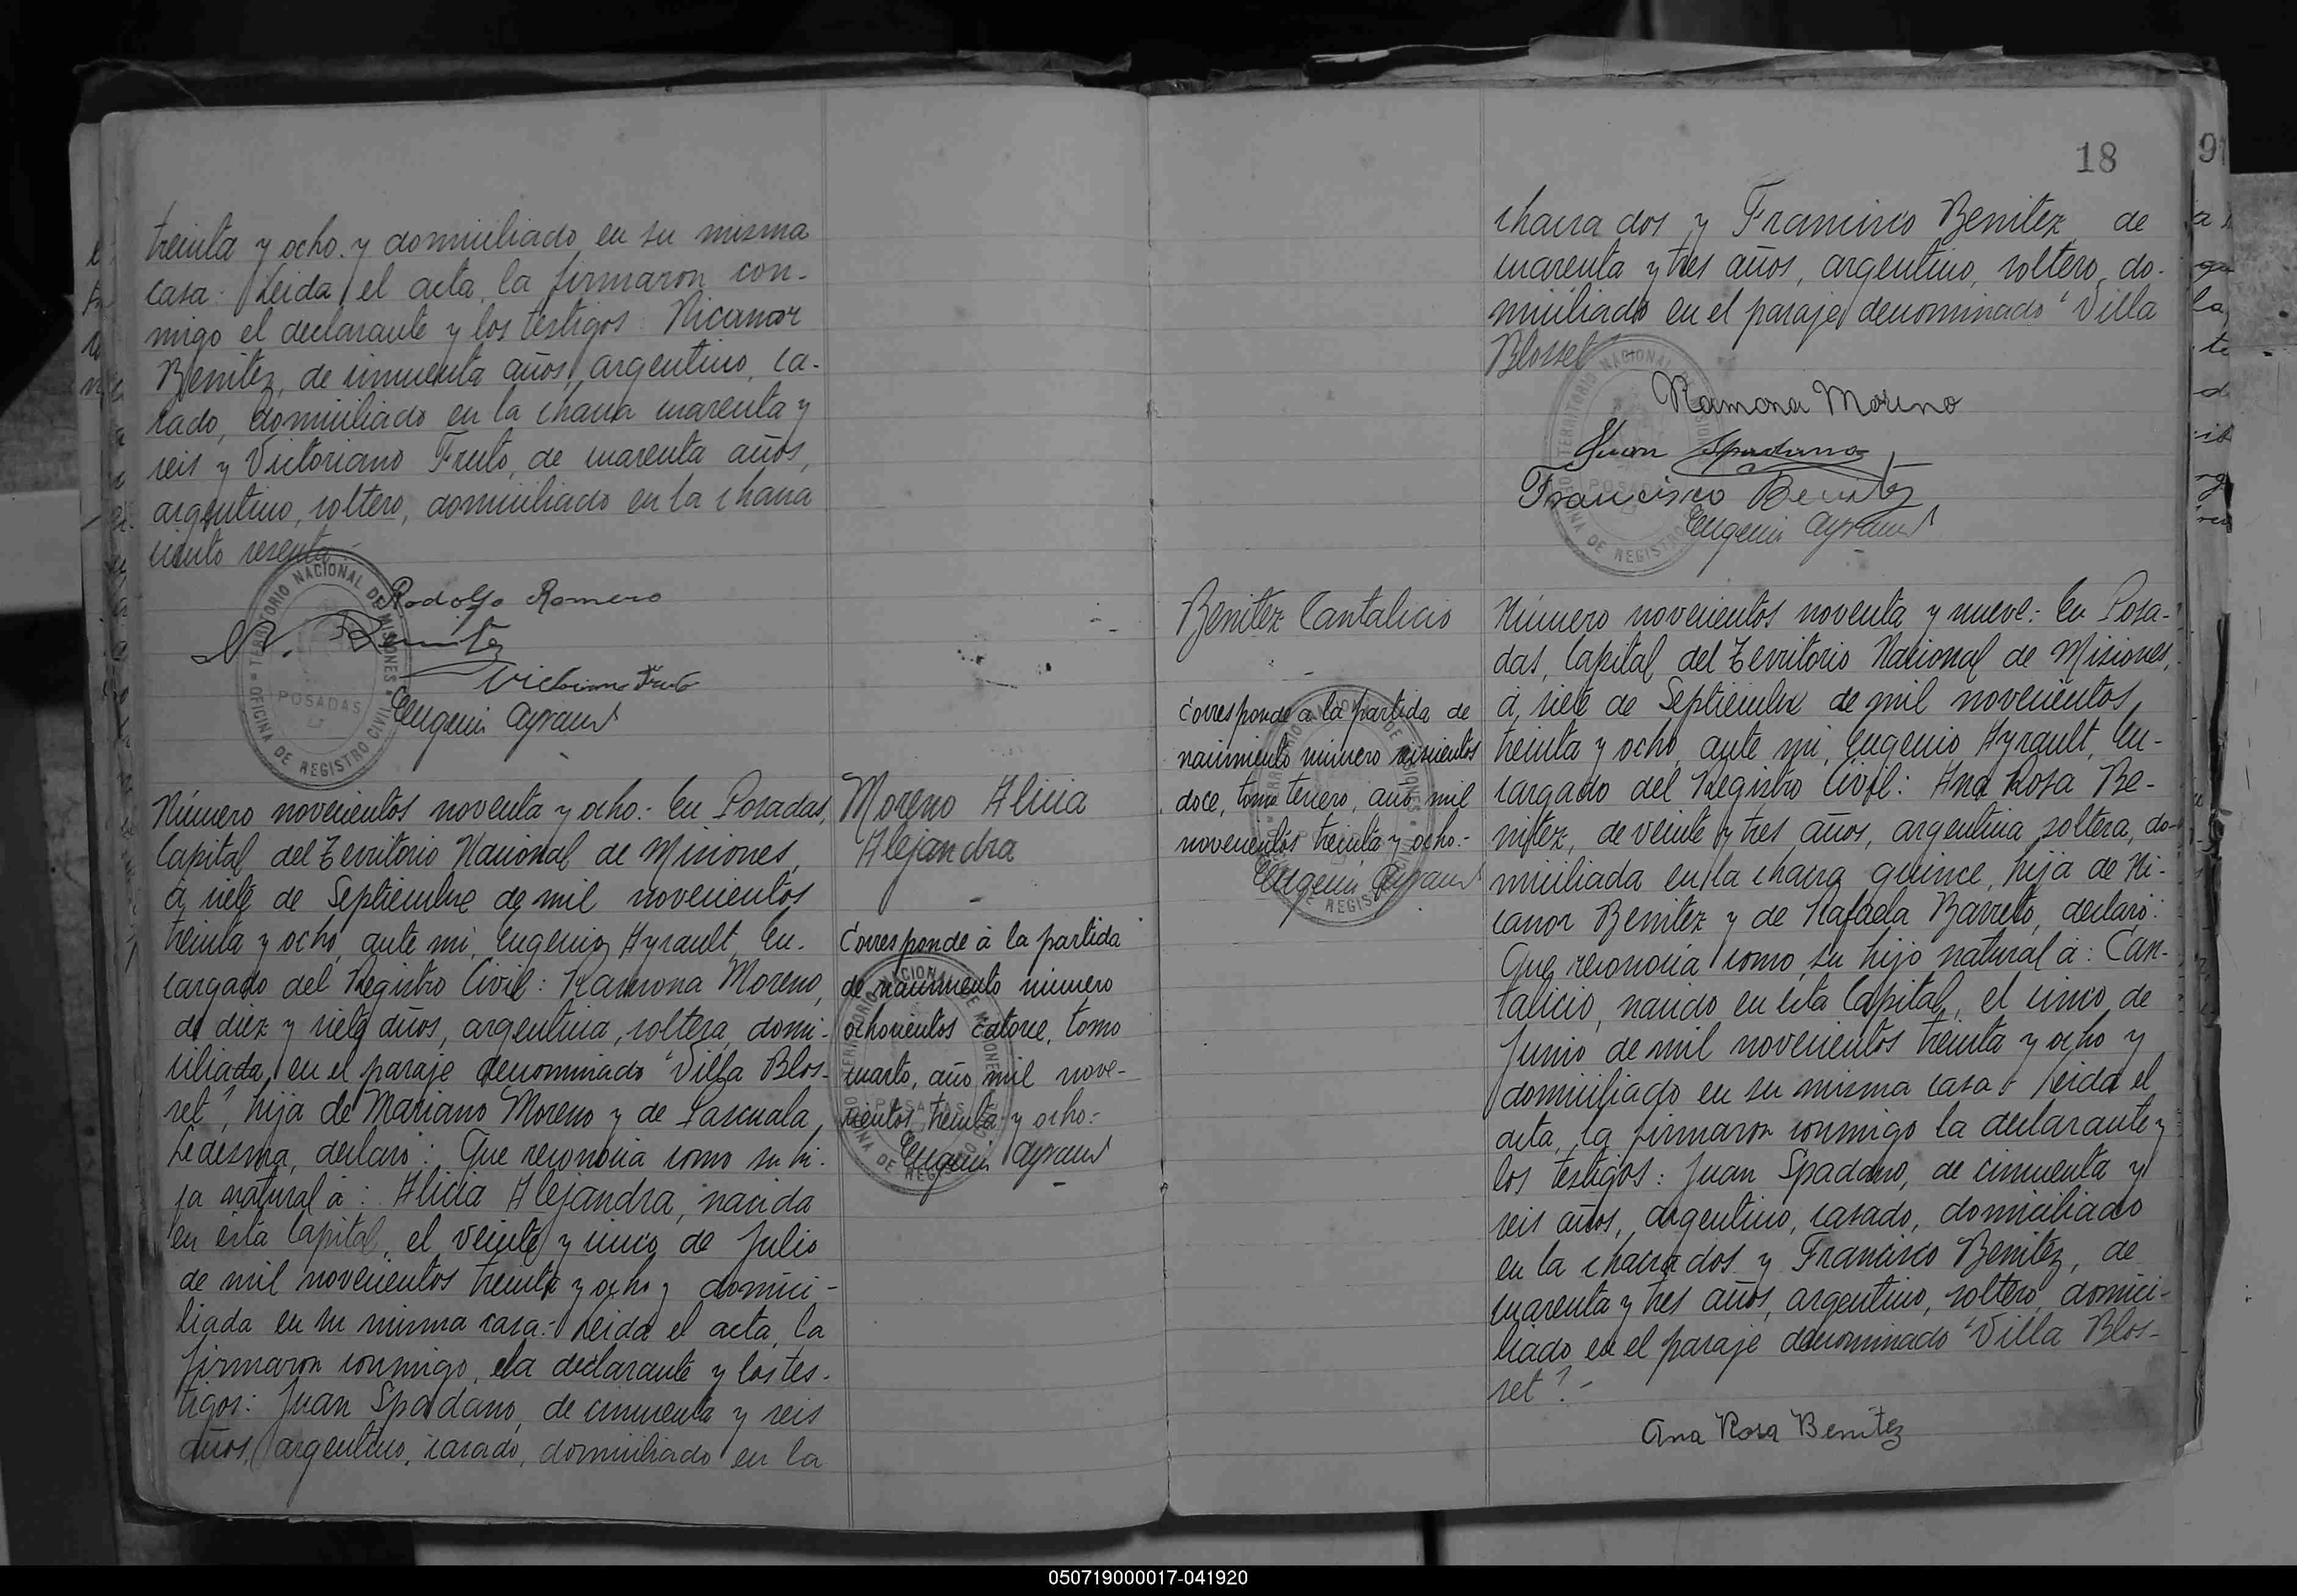 treinta y ocho y domiciliado en su misma
casa: Leida el acta, la firmaron con-
migo el declarante y los testigos: Nicanor
Benitez, de cincuenta años, argentino, ca-
sado, domiciliado en la chacra cuarenta y
seis y Victoriano Fruto, de cuarenta años,
argentino, soltero, domiciliado en la chacra
ciento sesenta.-
Rodolfo Romero
N. Benitez
Victoriano Fruto
Eugenio Ayrault
TERRITORIO NACIONAL DE MISIONES
POSADAS
OFICINA DE REGISTRO CIVIL
Número novecientos noventa y ocho.- En Posadas,
Capital del Territorio Nacional de Misiones,
á siete de Septiembre de mil novecientos
treinta y ocho, ante mi, Eugenio Ayrault, En-
cargado del Registro Civil: Ramona Moreno,
de diez y siete años, argentina, soltera, domi-
ciliada en el paraje denominado "Villa Blos-
set", hija de Mariano Moreno y de Pascuala
Ledesma, declaró: Que reconocia como su hi-
ja natural á: Alicia Alejandra, nacida
en esta Capital, el veinte y cinco de Julio
de mil novecientos treinta y ocho y domici-
liada en su misma casa.- Leida el acta, la
firmaron conmigo, la declarante y los tes-
tigos: Juan Spadano, de cincuenta y seis
años, argentino, casado, domiciliado en la
Moreno Alicia
Alejandra
-
Corresponde á la partida
de nacimiento número
ochocientos catorce, tomo
cuarto, año mil nove-
cientos treinta y ocho.-
Eugenio Ayrault
18
chacra dos y Francisco Benitez, de
cuarenta y tres años, argentino, soltero, do-
miciliado en el paraje denominado "Villa
Blosset"
Ramona Moreno
Juan Spadano
Francisco Benitez
Eugenio Ayrault
Benitez Cantalicio
-
Corresponde á la partida de
nacimiento número seiscientos
doce, tomo tercero, año mil
novecientos treinta y ocho.-
Eugenio Ayrault
Número novecientos noventa y nueve.- En Posa-
das, Capital del Territorio Nacional de Misiones,
á siete de Septiembre de mil novecientos
treinta y ocho, ante mi, Eugenio Ayrault, En-
cargado del Registro Civil: Ana Rosa Be-
nitez, de veinte y tres años, argentina, soltera, do-
miciliada en la chacra quince, hija de Ni-
canor Benitez y de Rafaela Barreto, declaró:
Que reconocia como su hijo natural á: Can-
talicio, nacido en esta Capital, el cinco de
Junio de mil novecientos treinta y ocho y
domiciliado en su misma casa.- Leida el
acta, la firmaron conmigo la declarante y
los testigos: Juan Spadano, de cincuenta y
seis años, argentino, casado, domiciliado
en la chacra dos y Francisco Benitez, de
cuarenta y tres años, argentino, soltero, domici-
liado en el paraje denominado "Villa Blos-
set".-
Ana Rosa Benitez
050719000017-041920